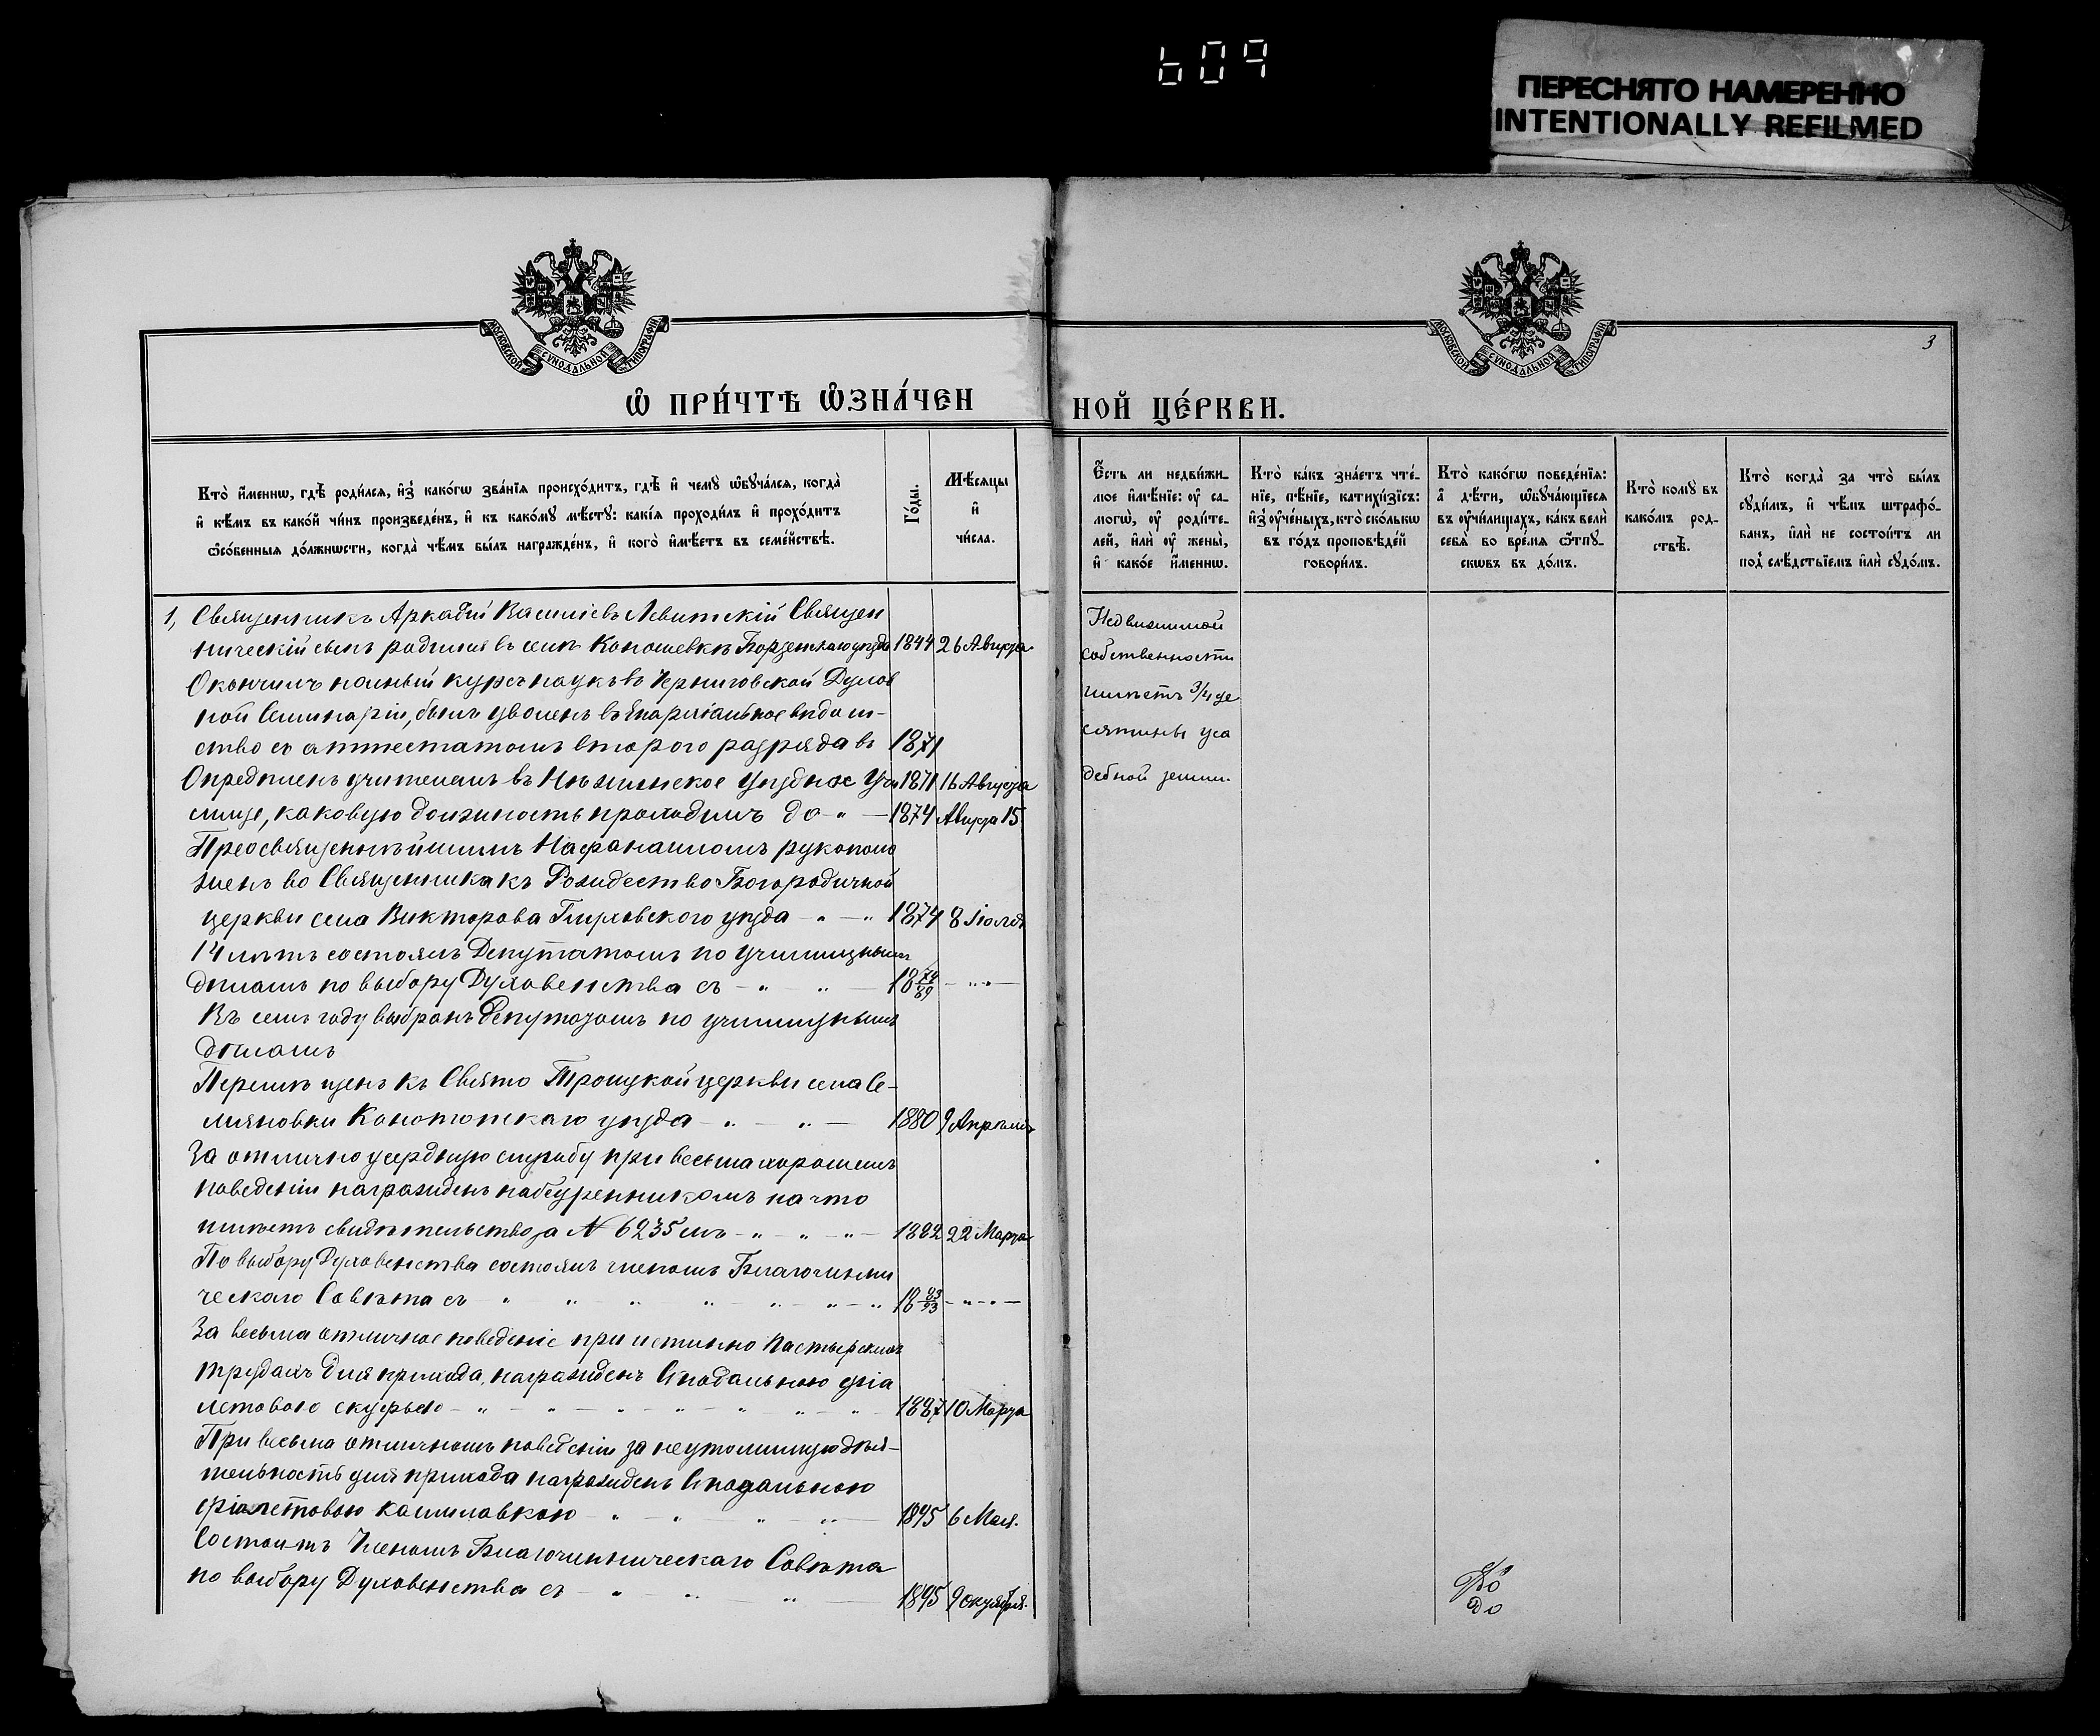 609
ПЕРЕСНЯТО НАМЕРЕННО
INTENTIONALLY REFILMED
МОСКОВСКОЙ СУНОДАЛЬНОЙ ТИПОГРАФІИ
МОСКОВСКОЙ СУНОДАЛЬНОЙ ТИПОГРАФІИ
3
Ѽ ПРИ́ЧТѢ Ѽ҆ЗНА́ЧЕН
НОЙ ЦЕ́РКВИ.
Кто̀ и҆́менню, гдѣ̀ роди́лсѧ, и҆з̾ како́гѡ зва́нїѧ происхо́дитъ, гдѣ̀ и҆ чемꙋ̀ ѡ҆бꙋча́лсѧ, когда̀
и҆ кѣ́мъ въ како́й чи́нъ произведе́нъ, и҆ къ како́мꙋ мѣ́стꙋ: какі́ѧ проходи́лъ и҆ прохо́дитъ
ѻ҆со́бенныѧ до́лжнѡсти, когда̀ чѣ́мъ бы́лъ награжде́нъ, и҆ кого̀ и҆мѣ́етъ въ семе́йствѣ.
Го́ды.
Мѣ́сѧцы
и҆
чи́сла.
Е҆́сть ли недви́жи-
мое и҆мѣ́нїе: ᲂу҆ са-
могѡ̀, ᲂу҆ роди́те-
лей, и҆лѝ ᲂу҆ жены̀,
и҆ како́е и҆́меннѡ.
Кто̀ ка́къ зна́етъ чте́-
нїе, пѣ́нїе, катихи́зїсъ:
и҆з̾ ᲂу҆че́ныхъ, кто̀ ско́лькѡ
въ го́дъ проповѣ́дей
говори́лъ.
Кто̀ како́гѡ поведе́нїѧ:
а҆ дѣ́ти, ѡ҆бꙋча́ющїесѧ
въ ᲂу҆чи́лищахъ, ка́къ велѝ
себѧ̀ во вре́мѧ ѿпꙋ-
скѡвъ въ до́мъ.
Кто̀ комꙋ̀ въ
како́мъ род-
ствѣ̀.
Кто̀ когда̀ за что̀ бы́лъ
сꙋди́мъ, и҆ чѣ́мъ штрафо́-
ванъ, и҆лѝ не состои́тъ ли
под̾ слѣ́дствїемъ и҆лѝ сꙋдо́мъ.
1, Священникъ Аркадій Василіевъ Левитскій Священ
ническій сынъ родился въ селѣ Коношевкѣ Борзенскаго уѣзда 1844 26 Августа
Окончилъ полный курсъ наукъ въ Черниговской Духов
ной Семинаріи, былъ уволенъ въ Епархіальное вѣдом-
ство съ аттестатомъ второго разряда въ 1871
Опредѣленъ учителемъ въ Нѣжинское Уѣздное Учи 1871 16 Августа
лище, каковую должность проходилъ до 1874 Августа 15
Преосвященнѣйшимъ Нафанаиломъ рукополо
женъ во Священника къ Рождество Богородичной
церкви села Викторова Глуховского уѣзда 1874 8 Іюля
14 лѣтъ состоялъ Депутатомъ по училищнымъ
дѣламъ по выбору Духовенства съ 18 74/89
Въ семъ году выбранъ Депутатомъ по училищнымъ
дѣламъ
Перемѣщенъ къ Свято Троицкой церкви села Се-
мяновки Конотопскаго уѣзда 1880 9 Апрѣля
За отлично усердную службу при весьма хорошемъ
поведеніи награжденъ набедренникомъ на что
имѣетъ свидѣтельство за N 6235 мъ 1882 22 Марта
По выбору Духовенства состоялъ членомъ Благочинни
ческаго Совѣта съ 18 83/93
За весьма отличное поведеніе при истинно Пастырскихъ
трудахъ для прихода, награжденъ Сѵнодальною фіа
летовою скуфьею 1887 10 Марта
При весьма отличномъ поведеніи за неутомимую дѣя-
тельность для прихода награжденъ Сѵнодальною
фіолетовою камилавкою 1895 6 Мая.
Состоитъ Членомъ Благочинническаго Совѣта
по выбору Духовенства съ 1895 9 октября.
Недвижимой
собственности
имѣетъ 3/4 де
сятины уса
дебной земли.